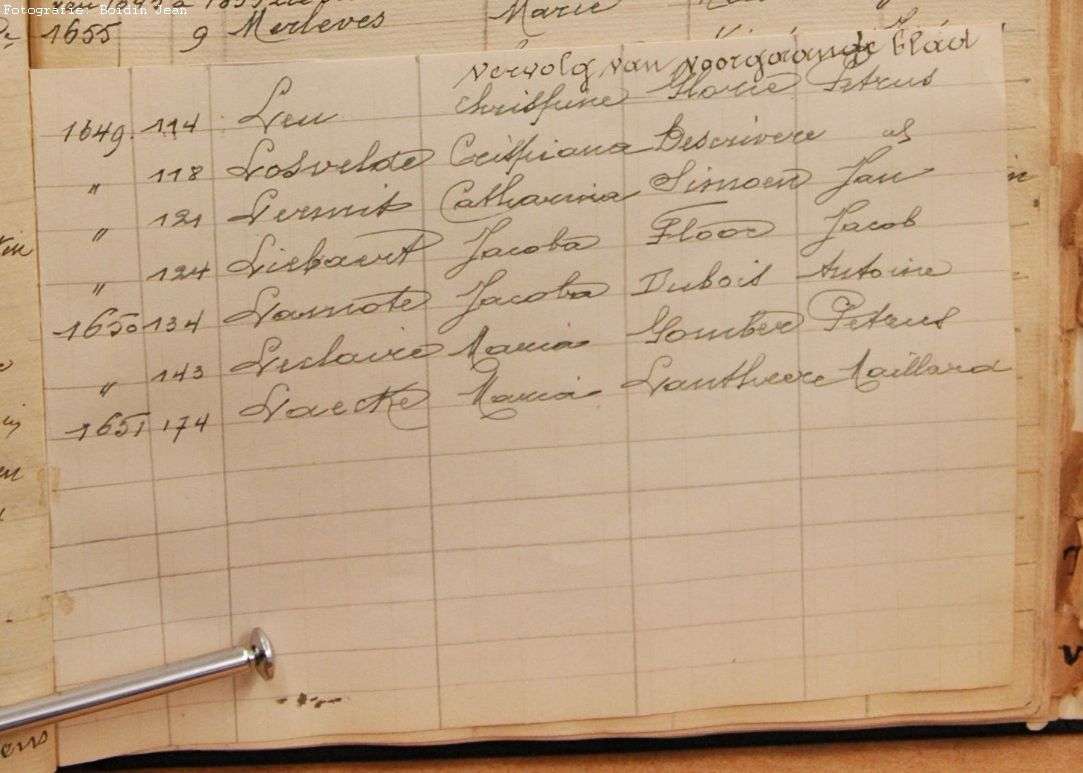 Fotografie: Boidin Jean
1655 9 Merleves Marie
vervolg van voorgaande blad
1649. 114 Leu Christine Glorie Petrus
" 118 Losvelde Crispiana Descrivere
" 121 Lermit Catharina Simoen Jan
" 124 Liebaert Jacoba Floor Jacob
1650 134 Lamote Jacoba Dubois Antoine
" 143 Leclaire Maria Gomber Petrus
1651 174 Laecke Maria Lantheere Maillard